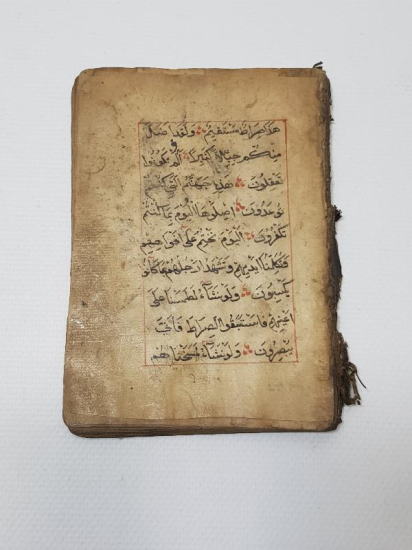 هذا صراط مستقيم ولقد اضل
منكم جبلا كثيرا الم تكونوا
تعقلون هذه جهنم التي كنتم
توعدون اصلوها اليوم بما كنتم
تكفرون اليوم نختم على افواههم
وتكلمنا ايديهم وتشهد ارجلهم بما كانوا
يكسبون ولو نشآء لطمسنا على
اعينهم فاستبقوا الصراط فانى
يبصرون ولو نشآء لمسخناهم